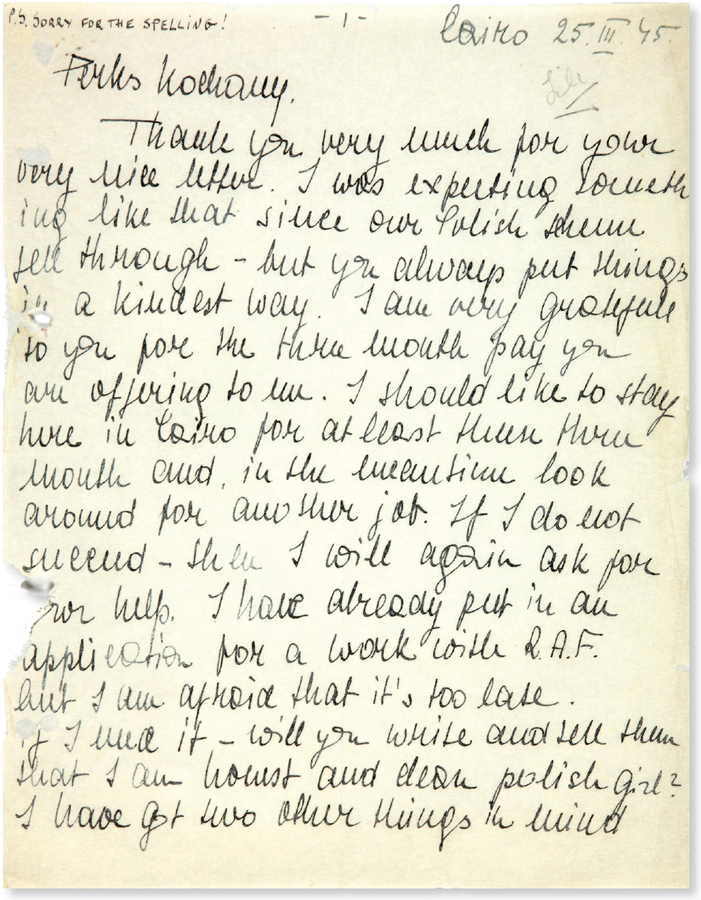 P.S. SORRY FOR THE SPELLING!
- 1 -
Cairo 25.III.45.
Perks Kochany,
Thank you very much for your
very nice letter. I was expecting someth
ing like that since our Polish scheme
fell through - but you always put things
in a kindest way. I am very grateful
to you for the three month pay you
are offering to me. I should like to stay
here in Cairo for at least these three
month and, in the meantime look
around for another job. If I do not
succeed - then I will again ask for
your help. I have already put in an
application for a work with R.A.F.
but I am afraid that it's too late.
if I need it - will you write and tell them
that I am honest and clean polish girl?
I have got two other things in mind